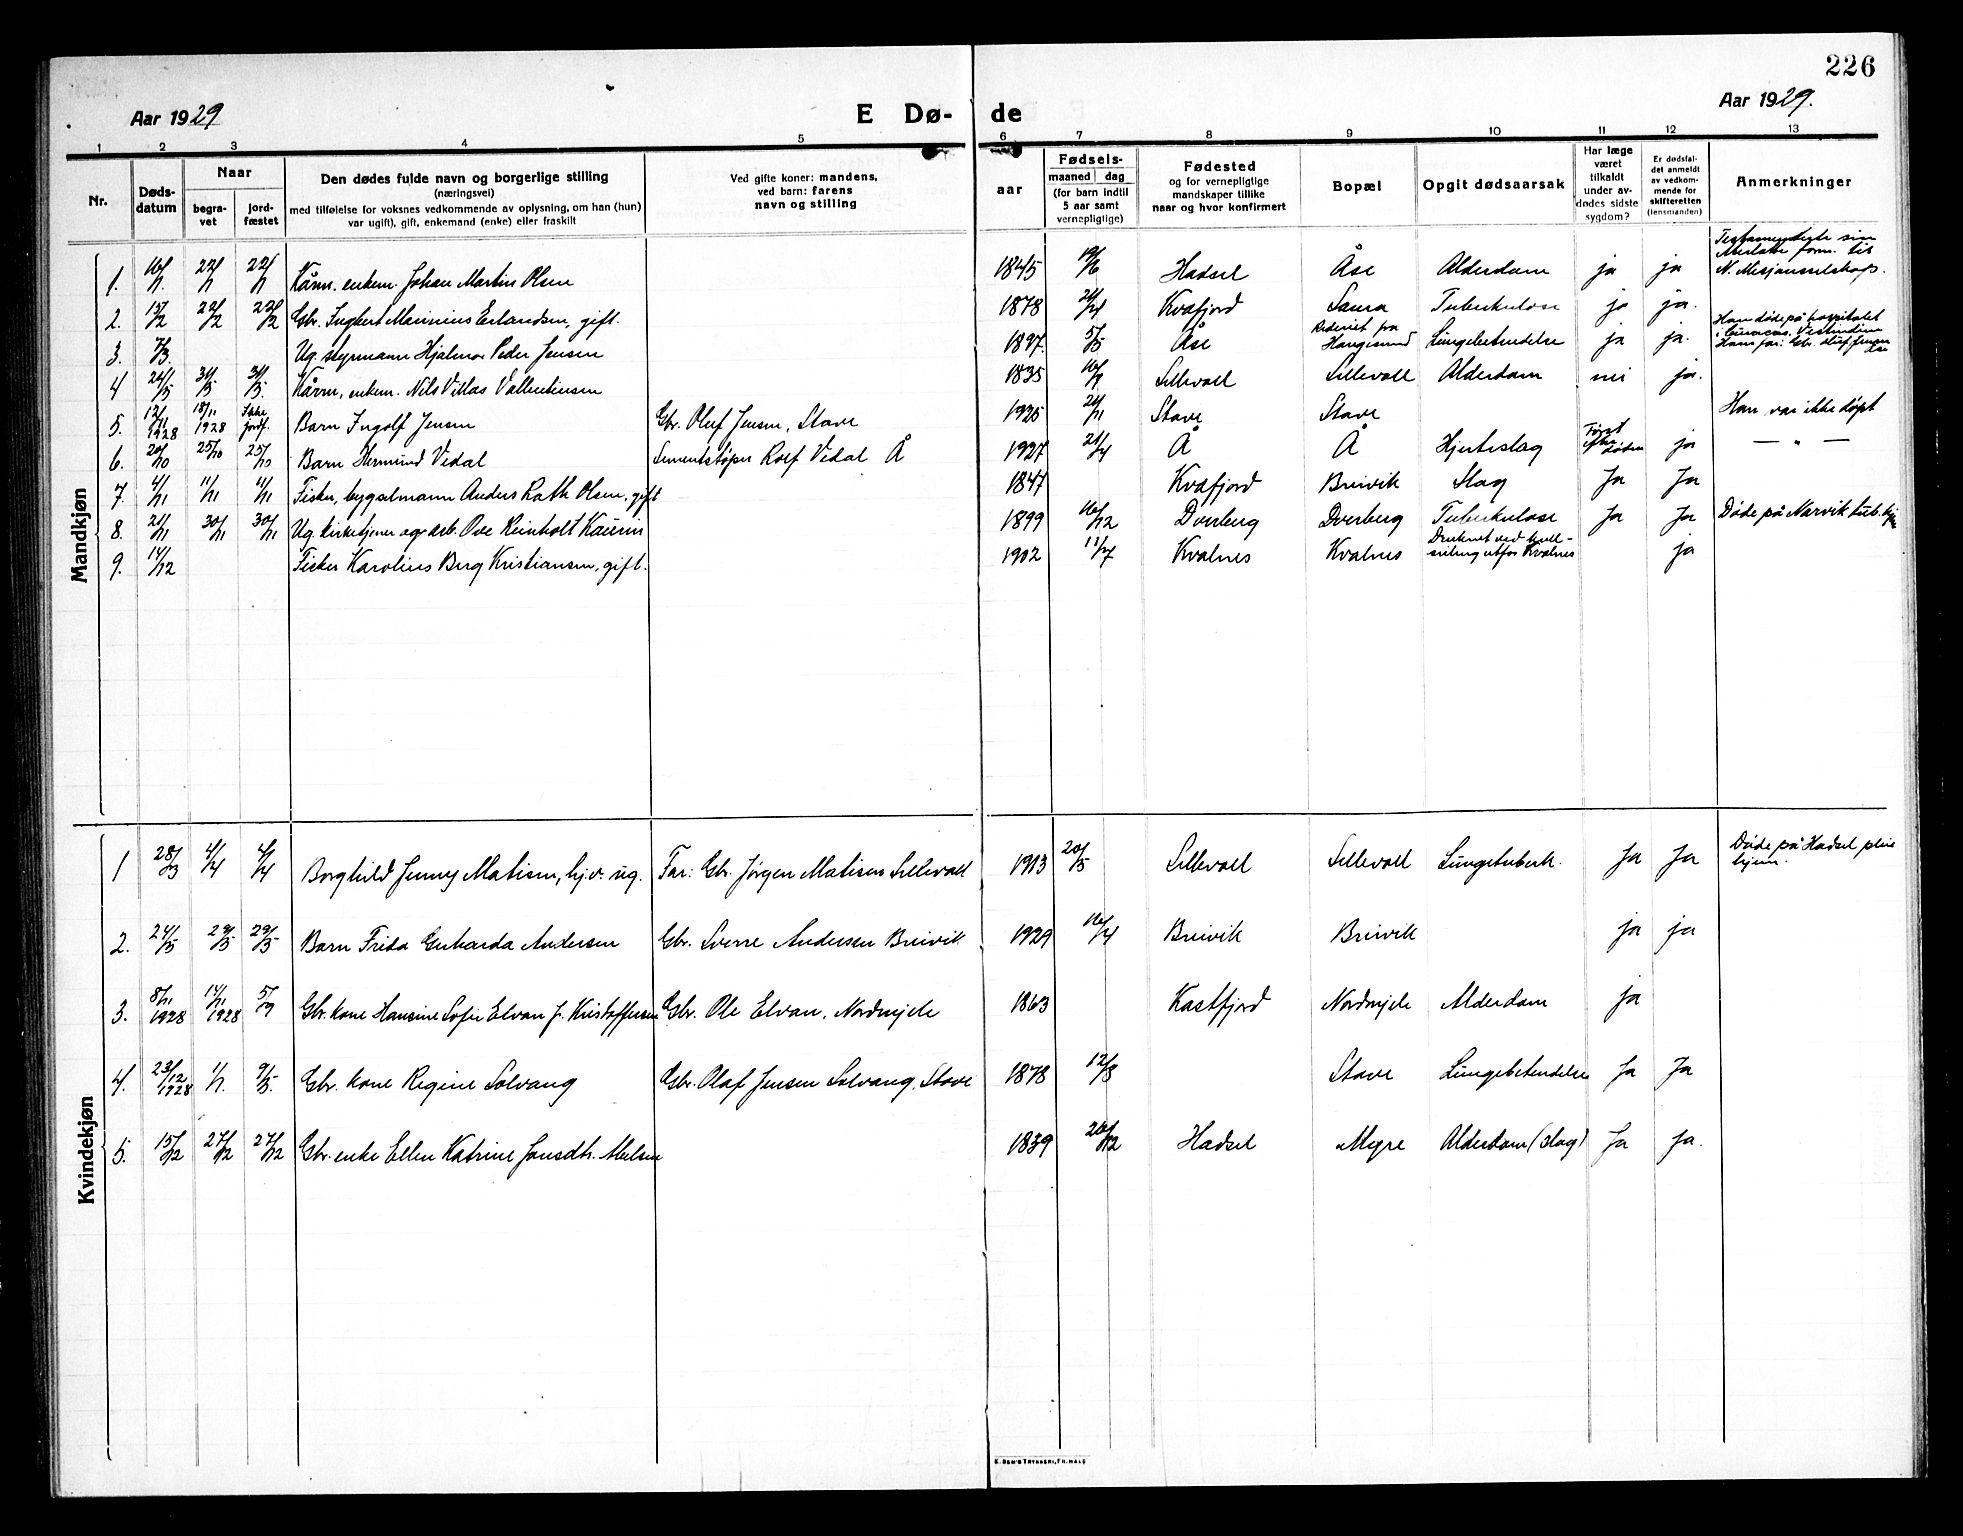 226
Aar 1929
E Dø-
de
Aar 1929.
1 2 3 4 5 6 7 8 9 10 11 12 13
Nr.
Døds-
datum
Naar
begra-
vet
jord-
fæstet
Den dødes fulde navn og borgerlige stilling
(næringsvei)
med tilføielse for voksnes vedkommende av oplysning, om han (hun)
var ugift), gift, enkemand (enke) eller fraskilt
Ved gifte koner: mandens,
ved barn: farens
navn og stilling
aar
Fødsels-
maaned dag
(for barn indtil
5 aar samt
vernepligtige)
Fødested
og for vernepligtige
mandskaper tillike
naar og hvor konfirmert
Bopæl
Opgit dødsaarsak
Har læge
været
tilkaldt
under av-
dødes sidste
sygdom?
Er dødsfal-
det anmeldt
av vedkom-
mende for
skifteretten
(lensmanden)
Anmerkninger
Mandkjøn
1. 16/1. 22/1 22/1 Kårm. enkem. Johan Martin Olsen 1845 19/6 Hadsel Åse Alderdom ja ja
N. Misjonsselskap.
2. 15/2 22/2 22/2 Gbr. Ingbert Marinius Erlandsen, gift. 1878 Kvafjord Saura Tuberkulose ja ja.
3. 7/3. Ug. styrmann Hjalmar Peder Jensen 1897. 5/5 Åse Lungebetendelse ja ja.
Han døde på hospitalet
4 24/5 31/5 31/5. Kårm, enkem. Nils Villas Vallentinsen 1835 Sellevoll Sellevoll Alderdom nei ja.
5. 12/11 1928 18/11 1928 Ikke jordf. Barn Ingolf Jensen Gbr. Oluf Jensen, Stave 1925 Stave Stave Han var ikke døpt
6. 20/10 25/10 25/10 Barn Hermund Vedal Sementstøper Rolf Vedal Å 1927 21/4 Å Å Hjerteslag Først efter døden ja — „ —
7. 4/11 11/11 11/11 Fisker, bygselmann Anders Rath Olsen, gift 1847 Kvafjord Breivik Slag Ja Ja
8. 21/11 30/11 30/11 Ug. kirketjener og arb. Ove Reinholt Kaurin 1899 16/12 Dverberg Dverberg Tuberkulose Ja Ja Døde på Narvik tub.hjem
9. 14/12 Fisker Karolius Berg Kristiansen, gift. 1902 11/7 Kvalnes Kvalnes Druknet ved kull-
seiling utfor Kvalnes ja
Kvindekjøn
1 28/3 4/4 4/4 Borghild Jenny Matisen, hj.v. ug. Far: Gbr. Jørgen Matisen Sellevoll 1913 20/5 Sellevoll Sellevoll Lungetuberk. Ja Ja Døde på Hadsel pleie
hjem.
2. 24/5 29/5 29/5 Barn Frida Gerharda Andersen Gbr. Sverre Andersen Breivik. 1929 16/4 Breivik Breivik ja ja
3. 8/11 1928 14/11 1928 5/9 Gbr. kone Hansine Sofie Elvan f. Kristoffersen Gbr. Ole Elvan, Nordmjele 1863 Kastfjord Nordmjele Alderdom ja
4. 23/12 1928 1/1. 9/5. Gbr. kone Regine Solvang Gbr. Olaf Jensen Solvang, Stave 1878 12/8 Stave Lungebetendelse Ja Ja
5. 15/12 27/12 27/12 Gbr. enke Ellen Katrine Jonsdtr. 1839 Hadsel Myre Alderdom (slag) Ja Ja.